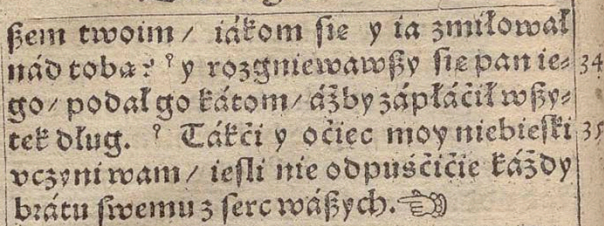 ßem twoim/ iákom ſie y ia zmiłował
nád toba? ? y rozgniewawßy ſie pan ie= 34
go/ podał go kátom/ áżby zápłáćił wßy=
tek dług. ? Tákći y oćiec moy niebieſki 35
vczyni wam/ ieſli nie odpuśćićie káżdy
brátu ſwemu z ſerc wáßych. ☜